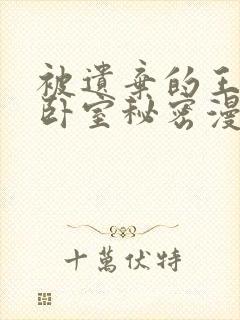 被遺棄的王
卧室秘密漫
十萬伏特